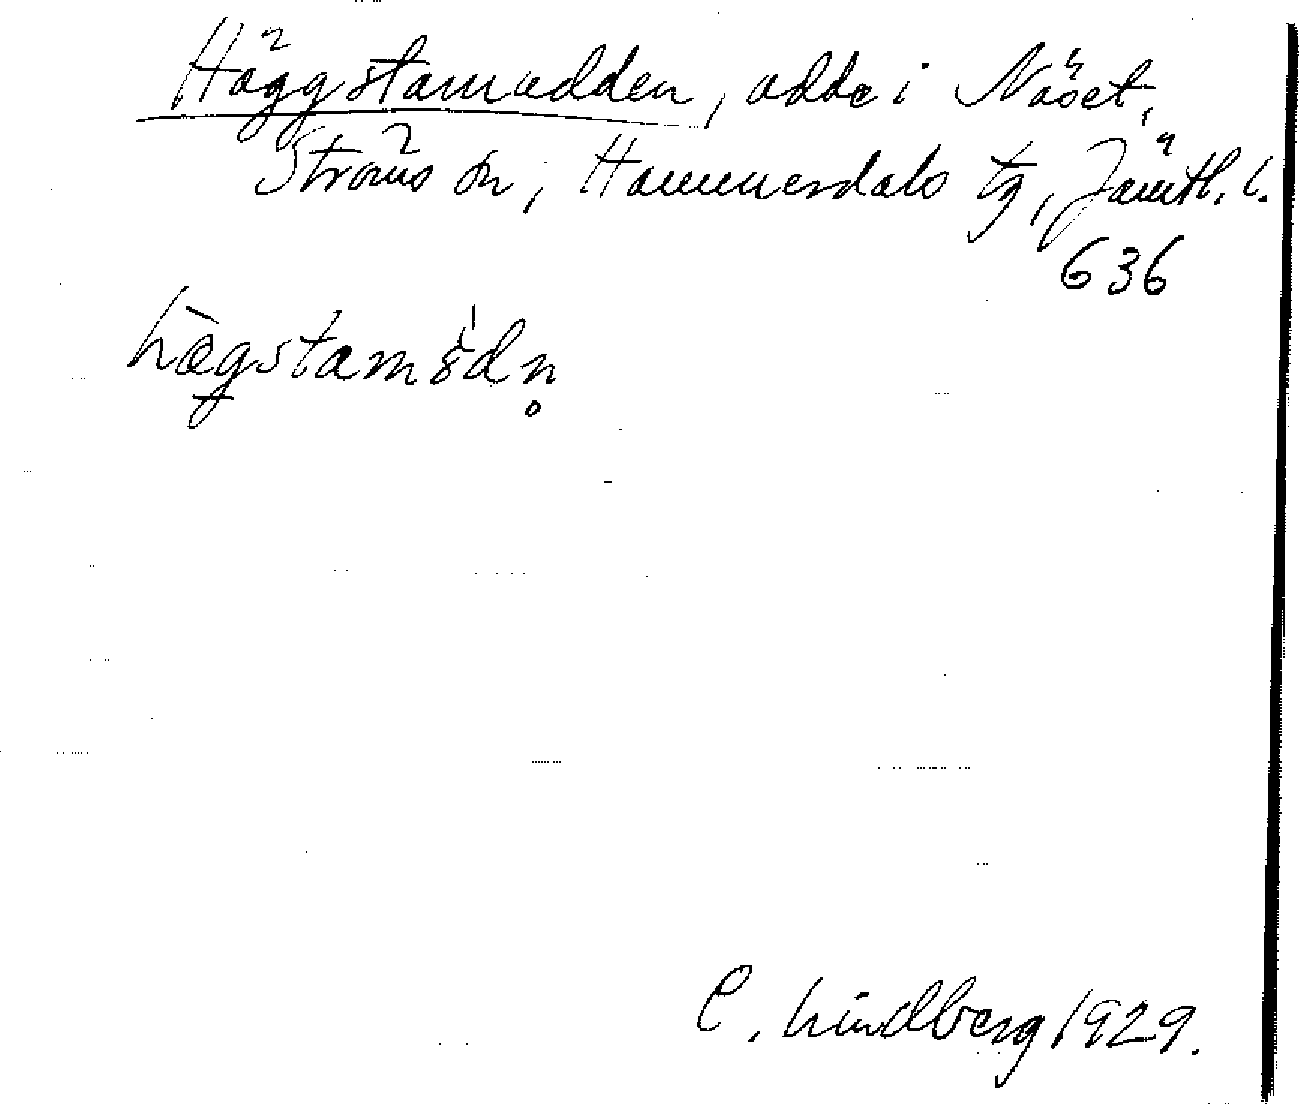 Häggstamudden, udde i Näset,
Ströms sn, Hammerdals tg, Jämtl. l.
636
C. Lindberg 1929.